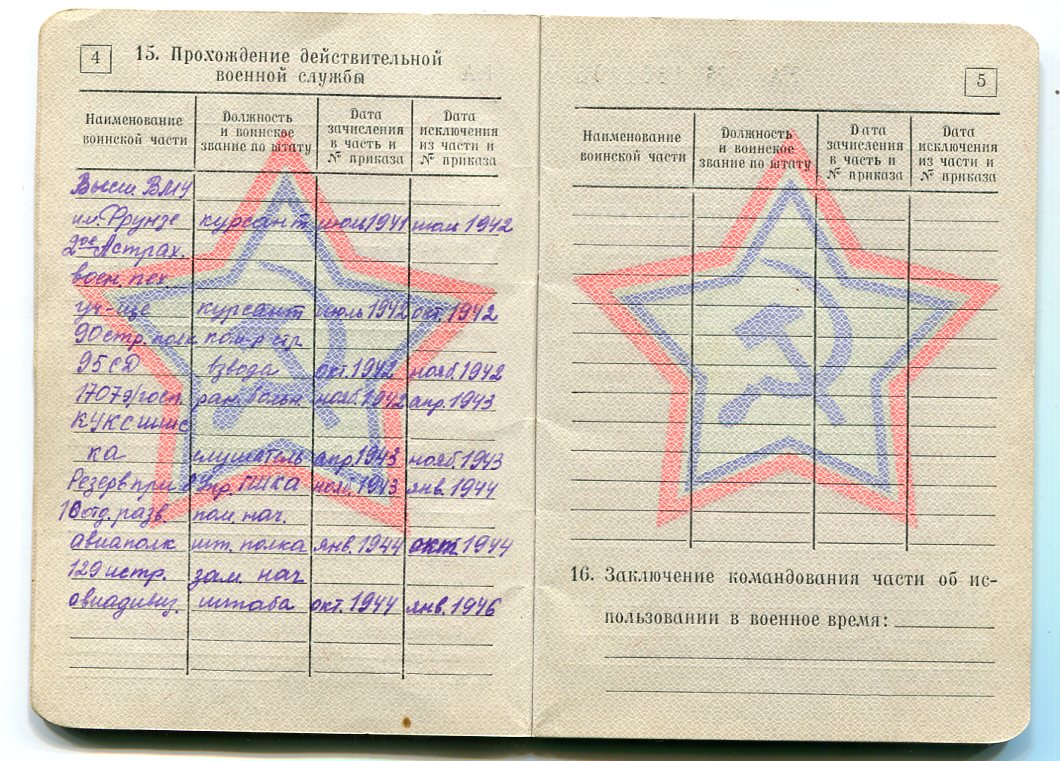 4
15. Прохождение действительной
военной службы
Наименование воинской части
Должность и воинское звание по штату
Дата зачисления в часть и № приказа
Дата исключения из части и № приказа
Высш. ВМУ
им. Фрунзе курсант июль 1941 июль 1942
2ое Астрах.
воен. пех.
уч-ще курсант июль 1942 окт. 1942
90 стр. полк ком-р стр.
95 СД взвода окт. 1942 нояб. 1942
1707 э/госп. ран. больн. нояб. 1942 апр. 1943
КУКС
ка слушатель апр. 1943 нояб. 1943
Резерв при нояб. 1943 янв. 1944
10 отд. разв. пом. нач.
авиаполк шт. полка янв. 1944 окт 1944
129 истр. зам. нач
авиадивиз. штаба окт. 1944 янв. 1946
5
Наименование воинской части
Должность и воинское звание по штату
Дата зачисления в часть и № приказа
Дата исключения из части и № приказа
16. Заключение командования части об ис-
пользовании в военное время: